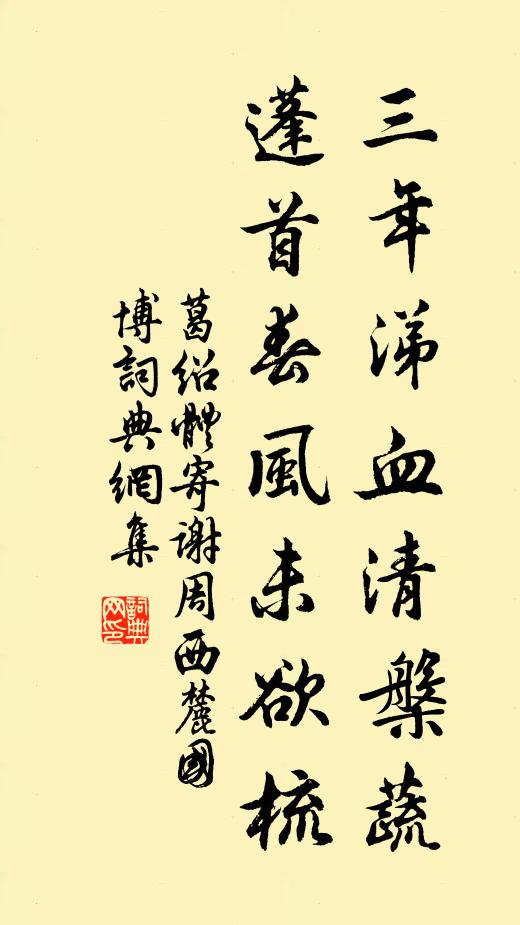 三年涕血清槃蔬
蓬首春風未欲梳
葛紹體寄謝周西麓國
博詞典網集
詞典
网印